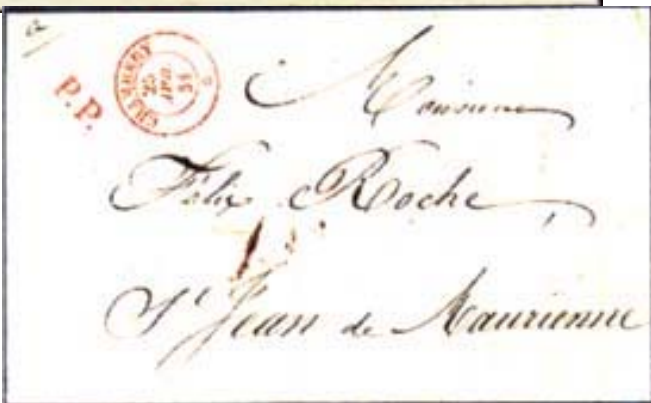 P.P.
CHAMBERY
25
AVR.
54
Monsieur
Felix Roche
St Jean de Maurienne